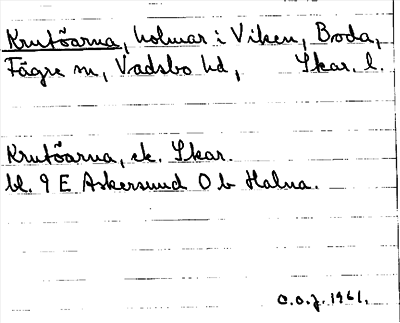 Krutöarna, holmar i Viken, Boda,
Fägre sn, Vadsbo hd, Skar. l.
Krutöarna, ek. Skar.
bl. 9 E Askersund 0 b Halna.
O.O.J. 1961.